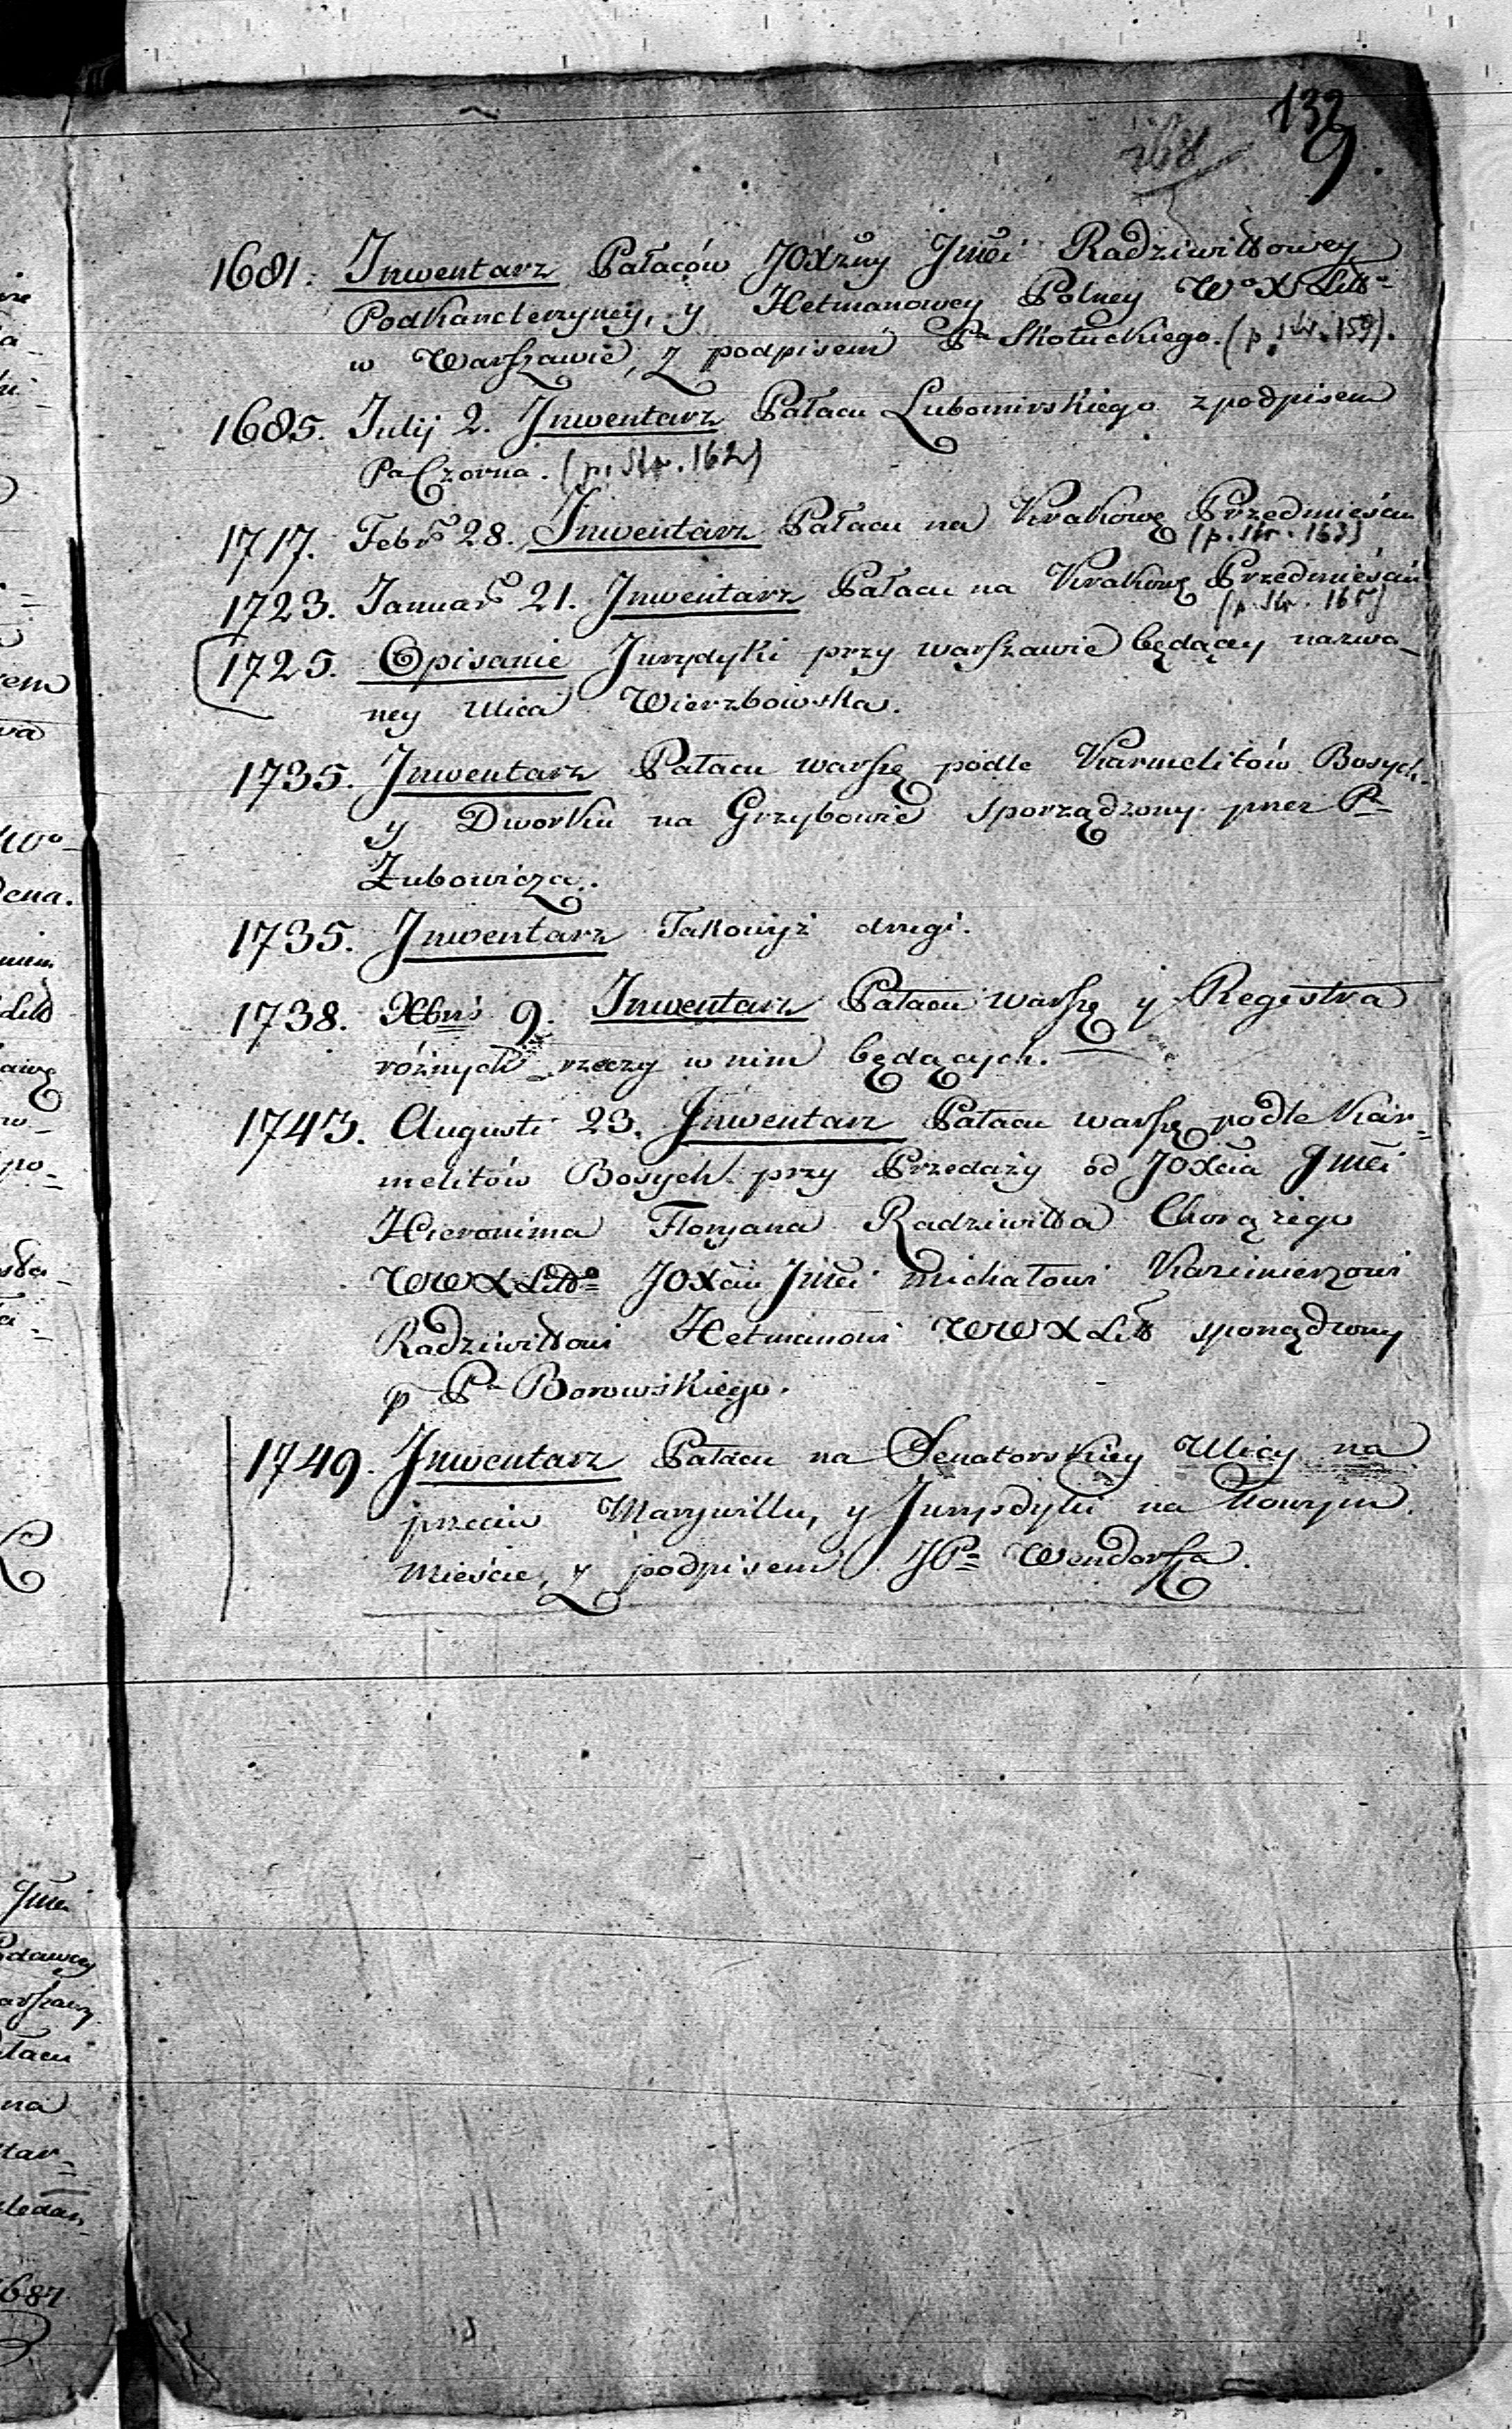 132
268
9.
1681. Inwentarz Pałaców JOXżny Jmci Radziwiłłowey
Podkanclerzyney, y Hetmanowey Polney Wo X Litto
w Warszawie, z podpisem Pa Skołuckiego. (p. str. 159).
1685. Julij 2. Inwentarz Pałacu Lubomirskiego z podpisem
Pa Czorna. (p. str. 162)
1717. Febr 28. Inwentarz Pałacu na Krakows Przedmieściu
(p. str. 163)
1723. Januar 21. Inwentarz Pałacu na Krakows Przedmieściu
(p. str. 165)
1725. Opisanie Jurydyki przy warszawie będący nazwa-
ney Ulica Wierzbowska.
1735. Inwentarz Pałacu warszg podle Karmelitów Bosych.
y Dworku na Grzybowie sporządzony przez Pa
Żubowicza.
1735. Inwentarz Takowyż drugi.
1738. Xbris 9. Inwentarz Pałacu warszg y Regestra
różnych rzeczy w nim będących.
1743. Augusti 23. Inwentarz Pałacu warszg podle Kar-
melitów Bosych przy Przedaży od JOXcia Jmci
Hieronima Floryana Radziwiłła Chorążego
WWXLitto JOXciu Jmci Michałowi Kazimierzowi
Radziwiłłowi Hetmanowi WWXLitt sporządzony
p Pa Borowskiego.
1749. Inwentarz Pałacu na Senatorskiey Ulicy na
przeciw Marywillu, y Jurysdyki na Nowym
Mieście, z podpisem JPa Wendorffa.